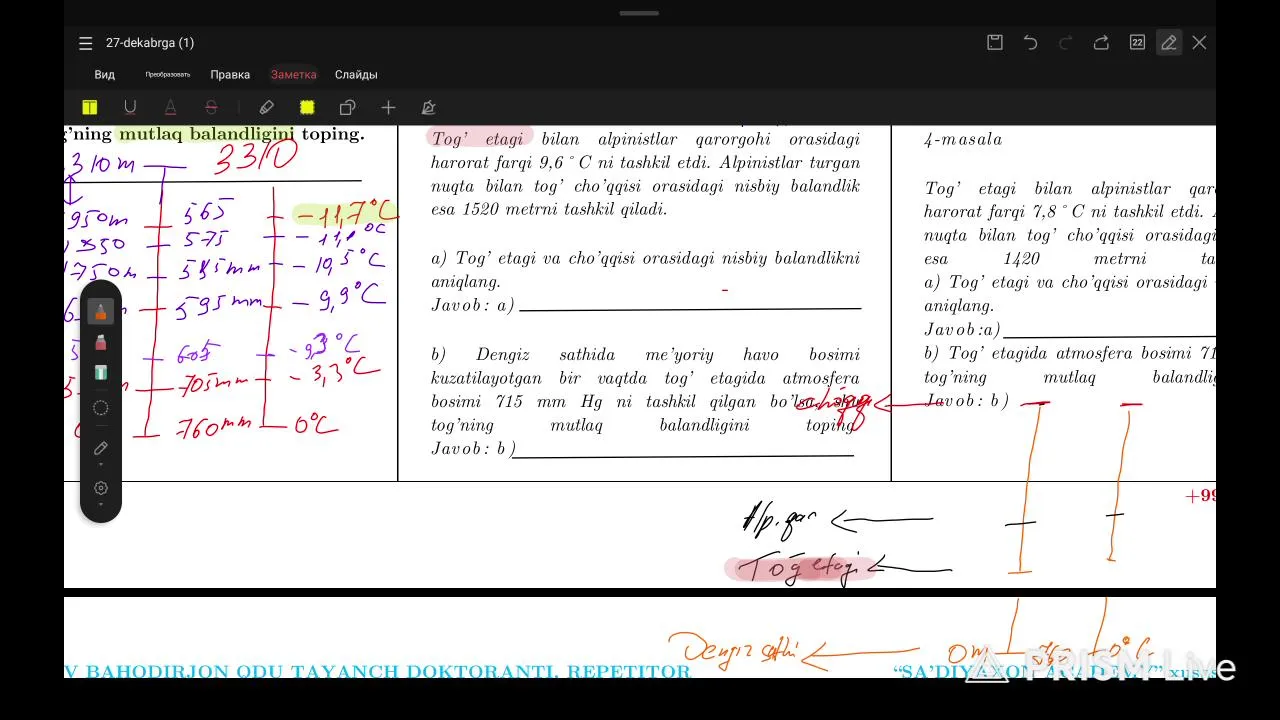 27-dekabrga (1)
22
Вид
Преобразовать
Правка
Заметка
Слайды
T U A S
g'ning mutlaq balandligini toping.
310m 3310
950m 565 -11,7°C
575
1750m 585mm -10,5°C
595mm -9,9°C
605 -9,3°C
705mm -3,3°C
760mm 0°C
Tog' etagi bilan alpinistlar qarorgohi orasidagi
harorat farqi 9,6°C ni tashkil etdi. Alpinistlar turgan
nuqta bilan tog' cho'qqisi orasidagi nisbiy balandlik
esa 1520 metrni tashkil qiladi.
a) Tog' etagi va cho'qqisi orasidagi nisbiy balandlikni
aniqlang.
Javob: a)
b) Dengiz sathida me'yoriy havo bosimi
kuzatilayotgan bir vaqtda tog' etagida atmosfera
bosimi 715 mm Hg ni tashkil qilgan bo'lsa, shu
tog'ning mutlaq balandligini toping.
Javob: b)
4-masala
Tog' etagi bilan alpinistlar qar
harorat farqi 7,8°C ni tashkil etdi.
nuqta bilan tog' cho'qqisi orasidagi
esa 1420 metrni ta
a) Tog' etagi va cho'qqisi orasidagi
aniqlang.
Javob:a)
b) Tog' etagida atmosfera bosimi 71
tog'ning mutlaq balandlig
Javob: b)
+99
Alp.qar
Tog etagi
Dengiz sathi 0m 760 0°C
V BAHODIRJON QDU TAYANCH DOKTORANTI, REPETITOR
"SA'DIYAXON ACADEMY" xusus
PRISM Live